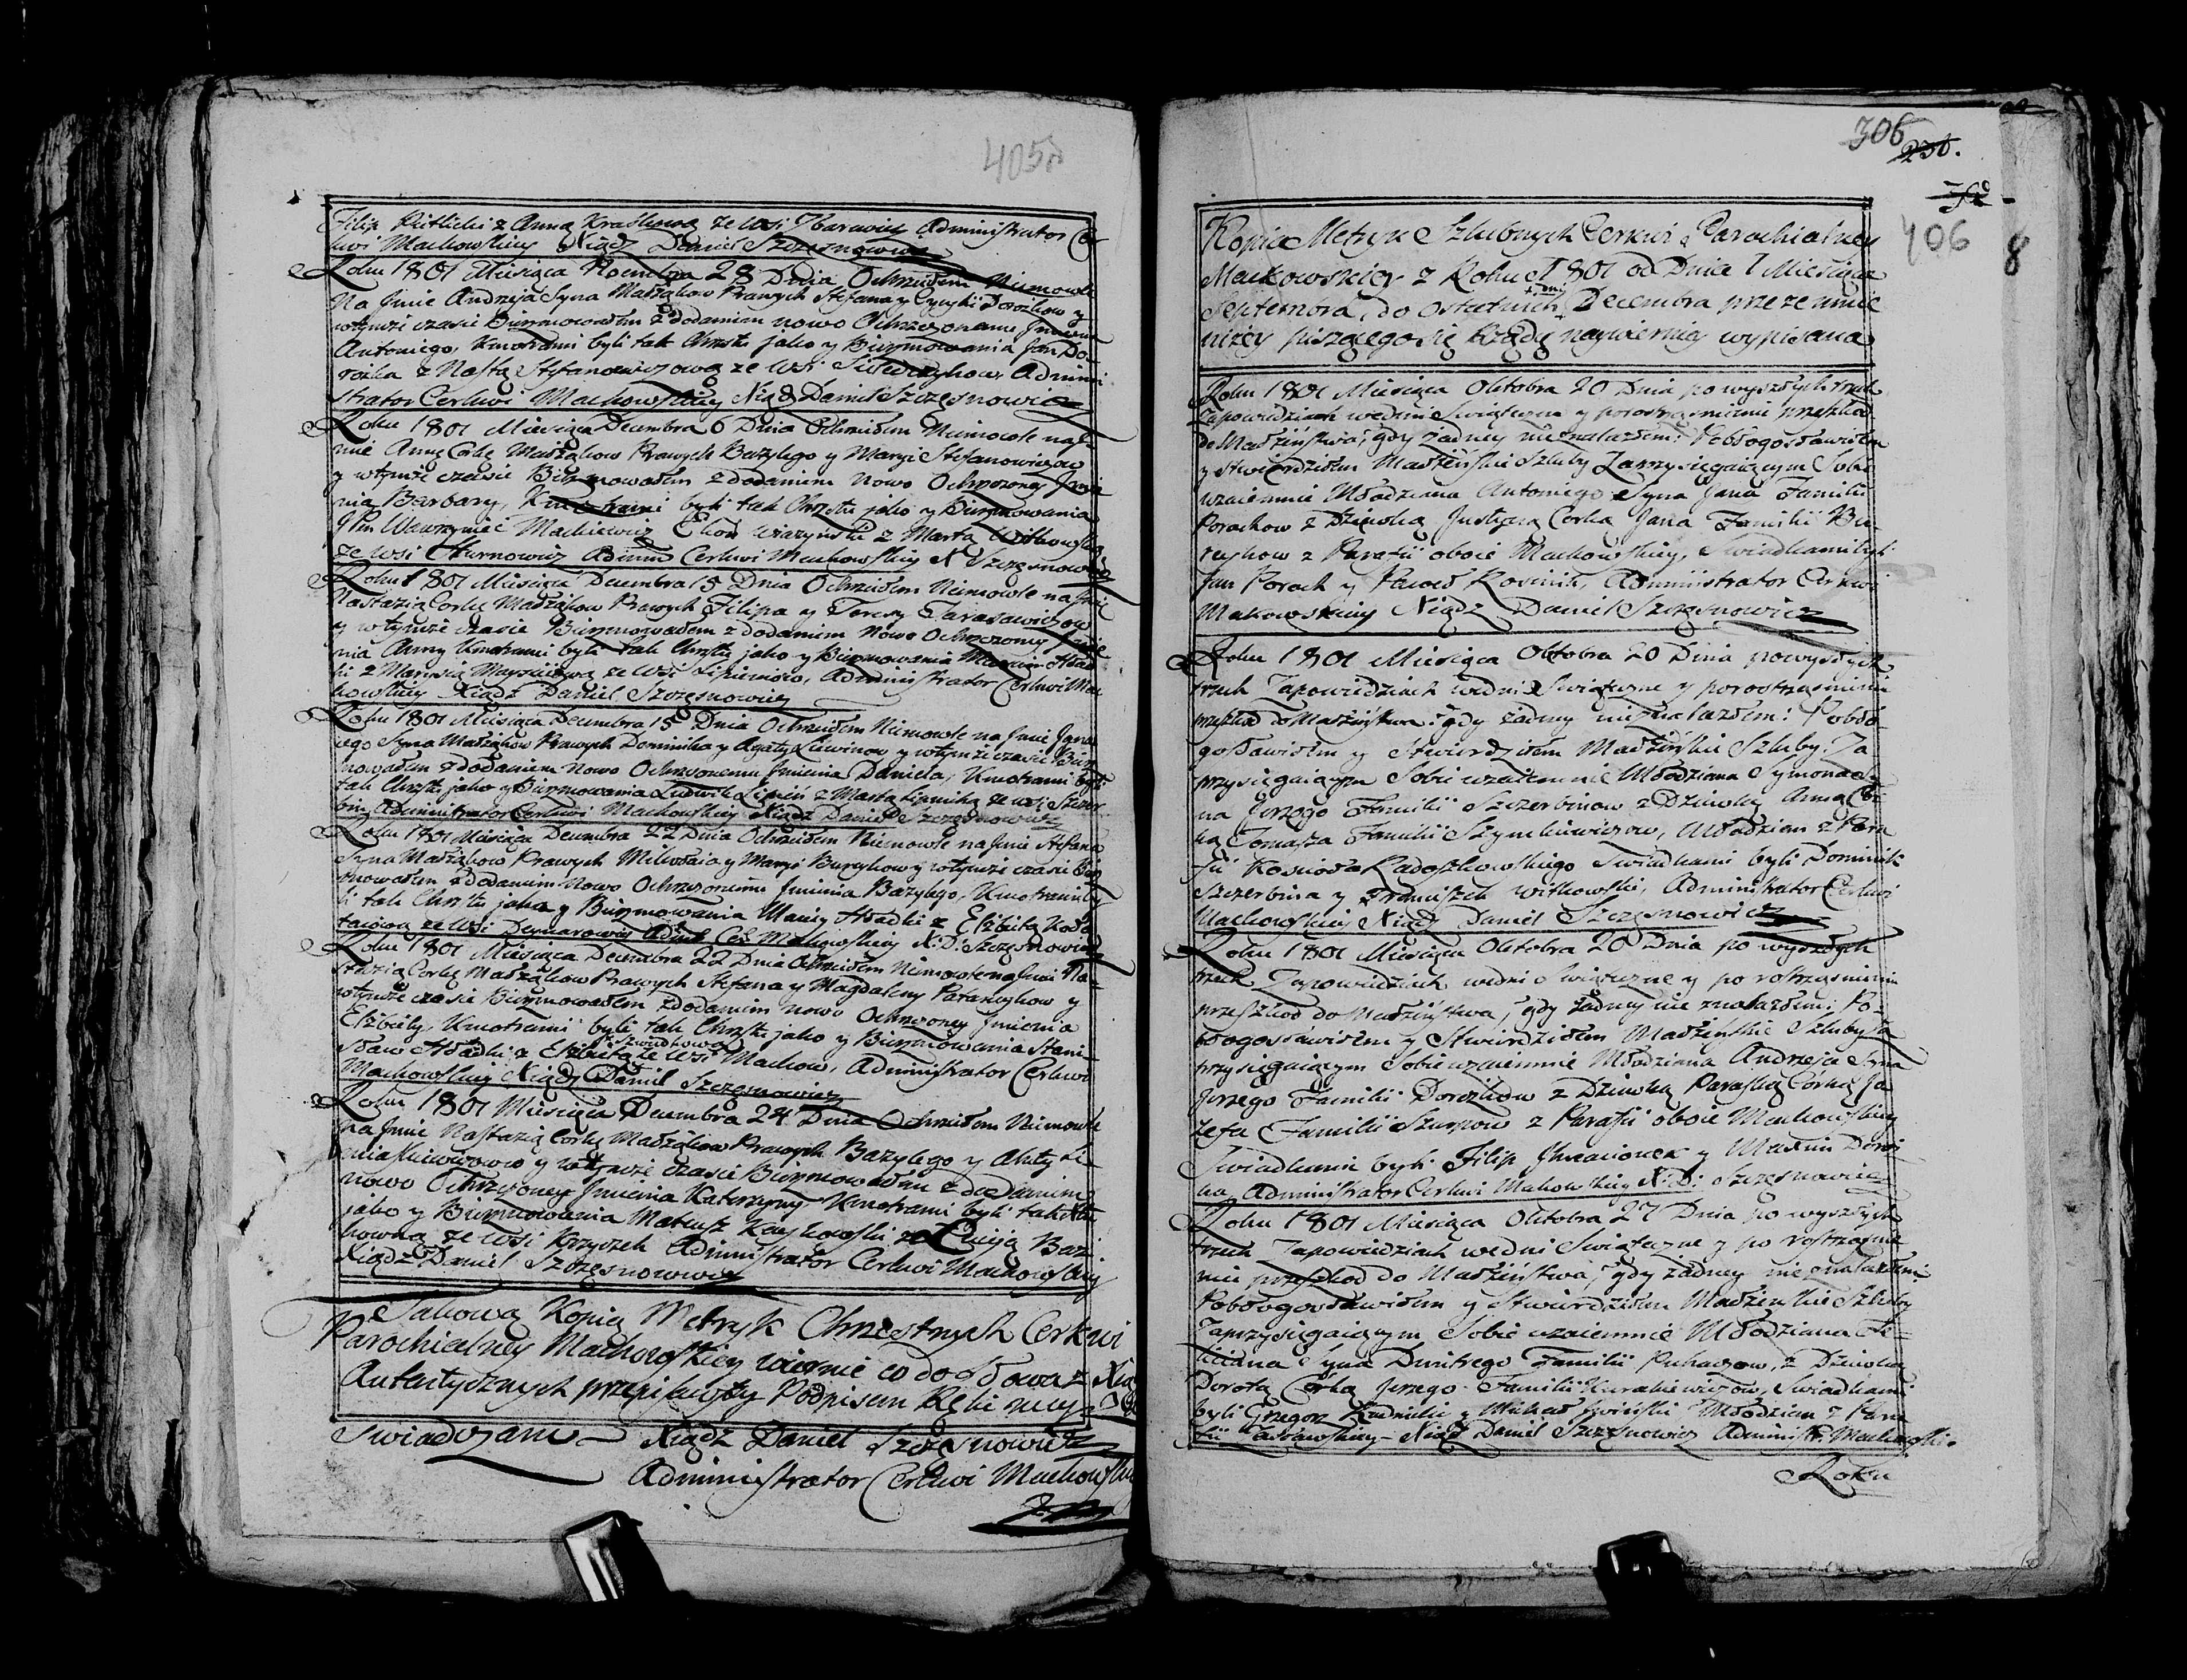 405
Filip Pietlicki z Anną Kraskową ze Wsi Administrator Cer
kwi Machowskiey Xiądz Daniel Szczęsnowicz
Roku 1801 Miesiąca Nowembra 28 Dnia Ochrzciłem Niemowle
Na Jmie Andrzeja Syna Małżąkow Prawych Stefana y Dorożkow y
wtymże czasie Bierzmowałem z dodaniem nowo Ochrzczonemu Jmienia
Antoniego, Kmotrami byli tak Chrztu jako y Bierzmowania Jan Do-
rożka z Nastą Stefanowiczową ze Wsi Admini
strator Cerkwi Machowskiey Xiądz Daniel Szczęsnowicz
Roku 1801 Miesiąca Decembra 6 Dnia Ochrzciłem Niemowle na J-
mie Annę Corkę Małżąkow Prawych Bazylego y Maryi Stefanowiczow
y wtymże czasie Bierzmowałem z dodaniem Nowo Ochrzczoney Jmie
nia Barbary, Kmotrami byli tak Chrztu jako y Bierzmowania
JPan Wawrzyniec Mackiewicz z Martą Witkowską
ze wsi Admin Cerkwi Machowskiey X Szczęsnowicz
Roku 1801 Miesiąca Decembra 15 Dnia Ochrzciłem Niemowle na Jmie
Nastazią Corkę Małżąkow Prawych Filipa y Teresy Tarasewiczow
y wtymże czasie Bierzmowałem z dodaniem Nowo Ochrzczoney Jmie
nia Anny Kmotrami byli tak Chrztu jako y Bierzmowania
ki z Marysią ze Wsi Administrator Cerkwi Ma
kowskiey Xiądz Daniel Szczęsnowicz
Roku 1801 Miesiąca Decembra 15 Dnia Ochrzciłem Niemowle na Jmie Jana
iego Syna Małżąkow Prawych Dominika y Agaty Liewinow y wtymże czasie Bierz
mowałem z dodaniem Nowo Ochrzczonemu Jmienia Daniela, Kmotrami byli
tak Chrztu jako y Bierzmowania Ludwik z Martą ze wsi Szczer
bin Administrator Cerkwi Machowskiey Xiądz Daniel Szczęsnowicz
Roku 1801 Miesiąca Decembra 22 Dnia Ochrzciłem Niemowle na Jmie Stefana
Syna Małżąkow Prawych Mikołaia y Maryi Bureykow y wtymże czasie Bierz
mowałem z dodaniem Nowo Ochrzczonemu Jmienia Bazylego, Kmotrami by
li tak Chrztu jako y Bierzmowania Maciey Hładki z Elżbietą
ze Wsi Admin Cer Machowskiey X: D: Szczęsnowicz
Roku 1801 Miesiąca Decembra 22 Dnia Ochrzciłem Niemowle na Jmie Na-
stazią Corkę Małżąkow Prawych Stefana y Magdaleny y
wtymże czasie Bierzmowałem z dodaniem Nowo Ochrzczoney Jmienia
Elżbiety, Kmotrami byli tak Chrztu jako y Bierzmowania Stani-
sław Hładki z Elżbietą ze Wsi Machow, Administrator Cerkwi
Machowskiey Xiądz Daniel Szczęsnowicz
Roku 1801 Miesiąca Decembra 24 Dnia Ochrzciłem Niemowle
na Jmie Nastazią Corkę Małżąkow Prawych Bazylego y
y wtymże czasie Bierzmowałem z dodaniem
nowo Ochrzczoney Jmienia Katerzyny, Kmotrami byli tak Chrztu
jako y Bierzmowania Mateusz z Łucyją
ze Wsi Krzyczek Administrator Cerkwi Machowskiey
Xiądz Daniel Szczęsnowicz
Takową Kopią Metryk Chrzestnych Cerkwi
Parochialney Machowskiey wiernie co do Słowa z Xiąg
Autentycznych przepisawszy Podpisem Ręki mey
Swiadczam Xiądz Daniel Szczęsnowicz
Administrator Cerkwi Machowskiey
306
236.
406
8
Kopia Metryk Szlubnych Cerkwi Parochialney
Mackowskiey z Roku 1801 od Dnia 1 Miesiąca
Septembra, do ostatnich dni Decembra przeze mnie
niżey piszącego się Rzędą naywierniey wypisana
Roku 1801 Miesiąca Oktobra 20 Dnia po wyszłych trzech
Zapowiedziach wedni Swiąteczne y porostrząśnieniu przeszkod
do Małżeństwa, gdy żadney nieznalazłem: Pobłogosławiłem
y stwierdziłem Małżeńskie Szluby Zaprzysięgaiącym Sobie
wzaiemnie Młodziana Antoniego Syna Jana Familii
Porachow z Dziewką Justyną Corką Jana Familii Bu-
reykow z Parafii oboie Machowskiey, Swiadkami byli
Jan Porach y Paweł Administrator Cerkwi
Makowskiey Xiądz Daniel Szczęsnowicz
Roku 1801 Miesiąca Oktobra 20 Dnia powyszłych
trzech Zapowiedziach wedni Swiąteczne y porostrząśnieniu
przeszkod do Małżeństwa: gdy żadney nieznalazłem: Pobło
gosławiłem y Stwierdziłem Małżeńskie Szluby. Za
przysięgaiącym Sobie wzaiemnie Młodziana Symona Sy
na Jerzego Familii Szczerbinow z Dziewką Anną Cor
ką Tomasza Familii Szymkiewiczow, Młodzian z Para
fii Kościoła Radoszkowskiego Swiadkami byli Dominik
Szczerbina y Franciszek Witkowski, Administrator Cerkwi
Machowskiey Xiądz Daniel Szczęsnowicz
Roku 1801 Miesiąca Oktobra 20 Dnia po wyszłych
trzech Zapowiedziach wedni Swiąteczne y po rostrząśnieniu
przeszkod do Małżeństwa, gdy żadney nie znalazłem: Po-
błogosławiłem y Stwierdziłem Małżeńskie Szluby Za
przysięgaiącym Sobie wzaiemnie Młodziana Andrzeja Syna
Jerzego Familii Dorożkow z Dziewką Paraską Corką Jo
zefa Familii Szurpow z Parafii oboie Machowskiey
Swiadkami byli Filip y Maxim Doroż
ka, Administrator Cerkwi Makowskiey X: D: Szczęsnowicz
Roku 1801 Miesiąca Oktobra 27 Dnia po wyszłych
trzech Zapowiedziach wedni Swiąteczne y po rostrząśnie
niu przeszkod do Małżeństwa, gdy żadney nieznalazłem:
Pobłogosławiłem y Stwierdziłem Małżeńskie Szluby
Zaprzysięgaiącym Sobie wzaiemnie Młodziana Fe-
liciana Syna Dmitrego Familii Puhaczow, z Dziewką
Dorotą Corką Jerzego Familii Kurakiewiczow, Swiadkami
byli Grzegorz Kudnicki y Michał Młodzian z Para
fii Xiądz Daniel Szczęsnowicz Administr. Machowski.
Roku